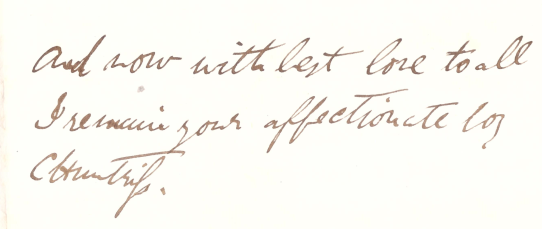 And now with best love to all
I remain your affectionate boy